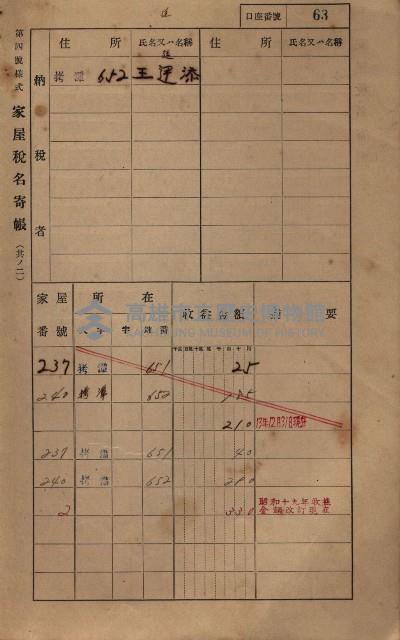 口座番號 63
第四號樣式 家屋稅名寄帳 (其ノ二)
住所 氏名又ハ名稱 住所 氏名又ハ名稱
納稅者
拷潭 652 王運添
家屋番號 所在 收益稅額 要
大字 字 地番
237 拷潭 651 25
240 拷潭 652
210 13年12月31日現在
237 拷潭 651 40
240 拷潭 652 290
2 330 昭和十九年收益金額改訂現在
高雄市立歷史博物館
KAOHSIUNG MUSEUM OF HISTORY